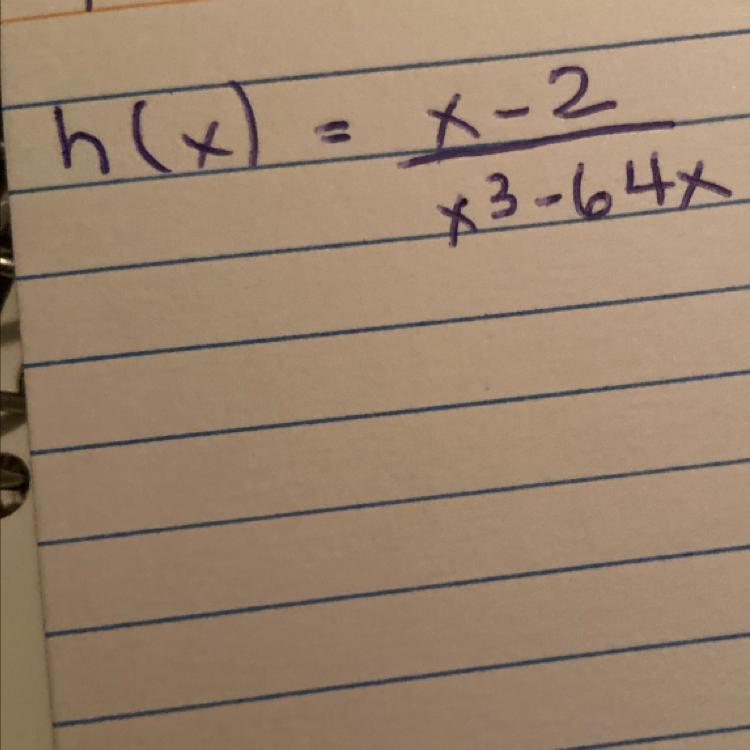 h(x) = \frac{x-2}{x^3-64x}